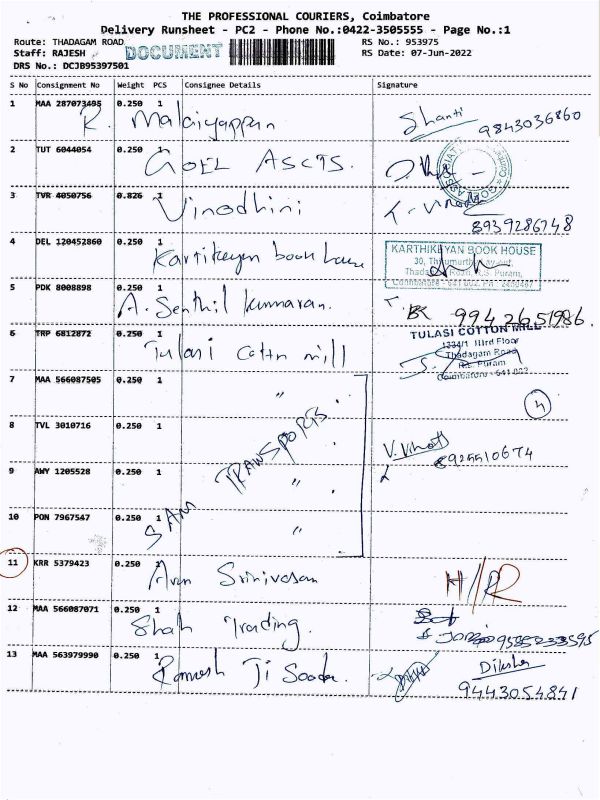 THE PROFESSIONAL COURIERS, Coimbatore
Delivery Runsheet - PC2 - Phone No.:0422-3505555 - Page No.:1
Route: THADAGAM ROAD RS No.: 953975
Staff: RAJESH DOCUMENT RS Date: 07-Jun-2022
DRS No.: DCJB95397501
S No Consignment No Weight PCS Consignee Details Signature
1 MAA 287073495 0.250 1 R. Malaiyappan Shanti 9843036860
2 TUT 6044054 0.250 1 GOEL ASCTS.
3 TVR 4050756 0.826 1 Vinodhini 8939286748
4 DEL 120452860 0.250 1 Kartikeyen book house
KARTHIKEYAN BOOK HOUSE
30, Thirumurthy Layout,
Thadagam Road, R.S. Puram,
5 PDK 8008898 0.250 1 A. Senthil kumaran. 9942651986.
6 TRP 6812872 0.250 1 Tulasi Cottn mill
TULASI COTTON MILL
IIIrd Floor
Thadagam Road
R.S. Puram
Coimbatore - 641 002
7 MAA 566087505 0.250 1 "
4
8 TVL 3010716 0.250 1 V. Vinoth 8925510674
SAM TRANSPORTS
9 AWY 1205528 0.250 1 "
10 PON 7967547 0.250 1 "
11 KRR 5379423 0.250 1 Arun Srinivasan H/R
12 MAA 566087071 0.250 1 Shah Trading.
13 MAA 563979990 0.250 1 Ramesh Ji Sooda. Diksha
9443054841